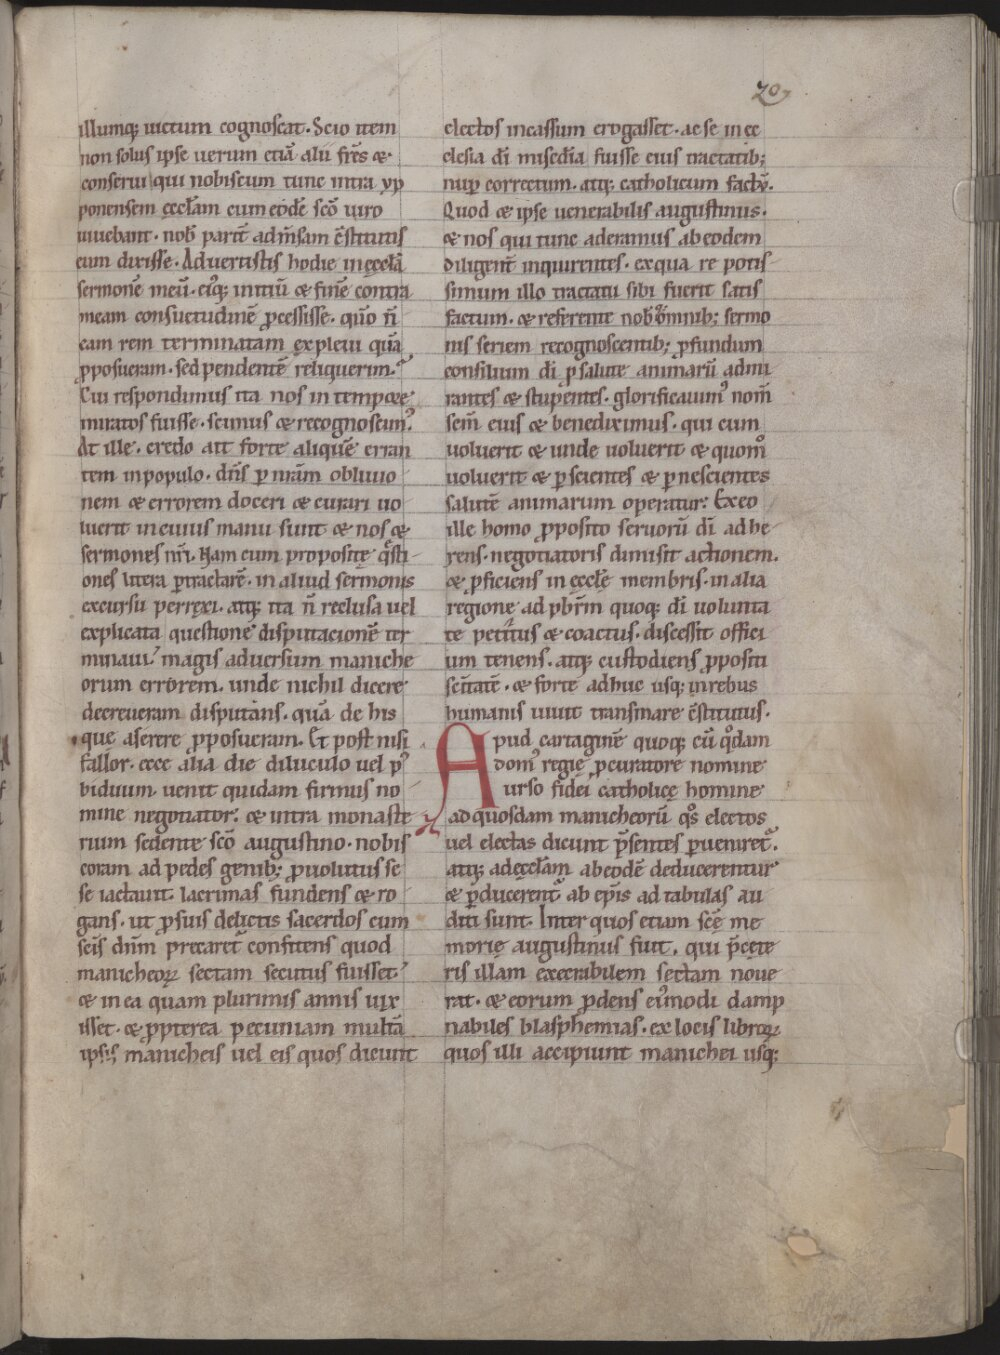 20
illumq; uictum cognoscat. Scio item
non solus ipse uerum etiā alii frēs &
conserui qui nobiscum tunc intra yp
ponensem ęccłam cum eodē scō uiro
uiuebant. nob̄ parit̄ ad m̄sam c̄stitutis
eum dixisse. Aduertistis hodie in ęcclā
sermonē meū. ei'q; initiū & finē contra
meam consuetudinē p̱cessisse. quō n̄
eam rem terminatam expleui quā
p̱posueram. sed pendentē reliquerim?
Cui respondimus ita nos in tempore
miratos fuisse. scimus & recognoscim'.
At ille. credo ait forte aliquē erran
tem in populo. dn̄s p̱ nr̄am obliuio
nem & errorem doceri & curari uo
luerit in cuius manu sunt & nos &
sermones nr̄i. Nam cum propositę q̄sti
ones latera p̱tractarē. in aliud sermonis
excursu perrexi. atq; ita n̄ reclusa uel
explicata questione disputacionē ter
minaui. magis aduersum maniche
orum errorem. unde nichil dicere
decreueram disputans. quā de his
que asserere p̱posueram. Et post nisi
fallor. ecce alia die diluculo uel p'
biduum uenit quidam firmus no
mine negotiator. & intra monaste
rium sedente scō augustino. nobis
coram ad pedes genib; p̱uolutus se
se iactauit. lacrimas fundens & ro
gans. ut p̱ suis delictis sacerdos cum
scīs dn̄m precaret̄ confitens quod
manicheoꝝ sectam secutus fuisset
& in ea quam plurimis annis uix
isset. & p̱pterea pecuniam multā
ipsis manicheis uel eis quos dicunt
electos incassum erogasset. ac se in ec
clesia dī misedīa fuisse eius tractatib;
nup̱ correctum. atq; catholicum factū.
Quod & ipse uenerabilis augustinus.
& nos qui tunc aderamus ab eodem
diligent̄ inquirentes. ex qua re potis
simum illo tractatu sibi fuerit satis
factum. & referente nob̄ om̄nib; sermo
nis seriem recognoscentib; p̱fundum
consilium dī p̱ salute animarū admi
rantes & stupentes. glorificauim' nom̄
scm̄ eius & benediximus. qui cum
uoluerit & unde uoluerit & quom̊
uoluerit & p̱ scientes & p̱ nescientes
salutē animarum operatur. Ex eo
ille homo p̱posito seruorū dī adhe
rens. negotiatoris dimisit actionem.
& p̱ficiens in ęcclę membris. in alia
regione ad pb̄rm quoq; dī uolunta
te petitus & coactus. discessit offici
um tenens. atq; custodiens p̱positi
scītatē. & forte adhuc usq; in rebus
humanis uiuit transmare c̄stitutus.
Apud cartaginē quoq; cū q̊dam
dom' regię p̱curatore nomine
urso fidei catholicę homine
ad quosdam manicheorū q̊s electos
uel electas dicunt p̄sentes p̱ueniret̄.
atq; ad ęcłam ab eodē deducerentur
& p̱ducerent̄ ab ep̄is ad tabulas au
diti sunt. Inter quos etiam scę me
morię augustinus fuit. qui p̄cęte
ris illam execrabilem sectam noue
rat. & eorum p̱dens ei'modi damp
nabiles blasphemias. ex locis libroꝝ
quos illi accipiunt manichei usq;